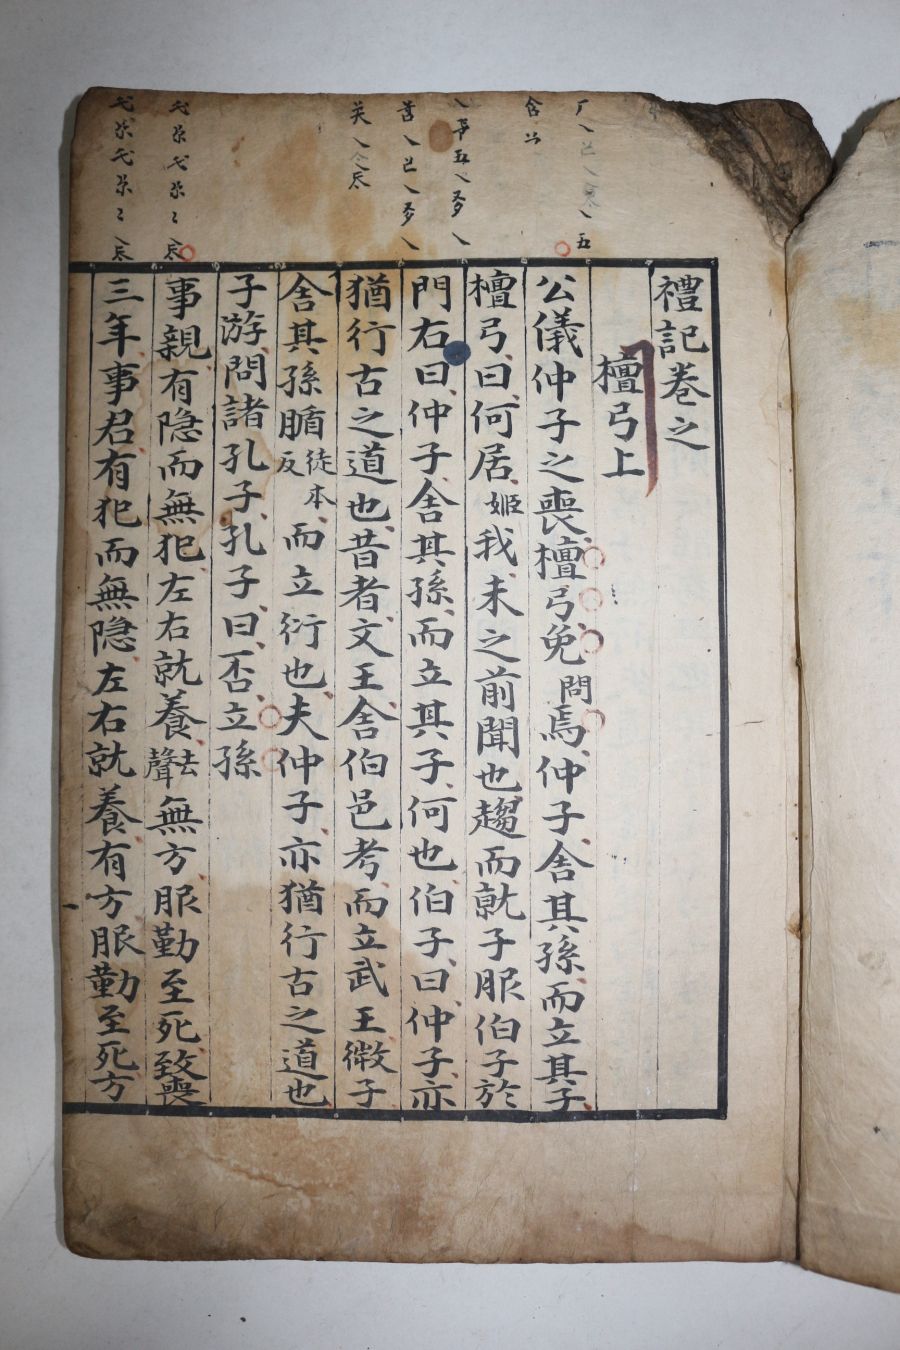 禮記卷之
檀弓上
公儀仲子之喪檀弓免問焉仲子舍其孫而立其子
檀弓曰何居姬我未之前聞也趨而就子服伯子於
門右曰仲子舍其孫而立其子何也伯子曰仲子亦
猶行古之道也昔者文王舍伯邑考而立武王微子
舍其孫腯徒本反而立衍也夫仲子亦猶行古之道也
子游問諸孔子孔子曰否立孫
事親有隐而無犯左右就養去聲無方服勤至死致喪
三年事君有犯而無隐左右就養有方服勤至死方